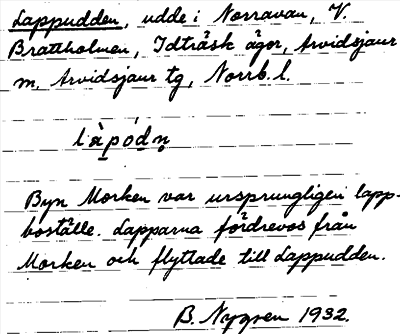 Lappudden, udde i Norravan, V.
Brattholmen, Idträsk ägor, Arvidsjaur
m. Arvidsjaur tg, Norrb. l.
làpódn̥
Byn Morken var ursprungligen lapp-
boställe. Lapparna fördrevos från
Morken och flyttade till Lappudden.
B. Nygren 1932.